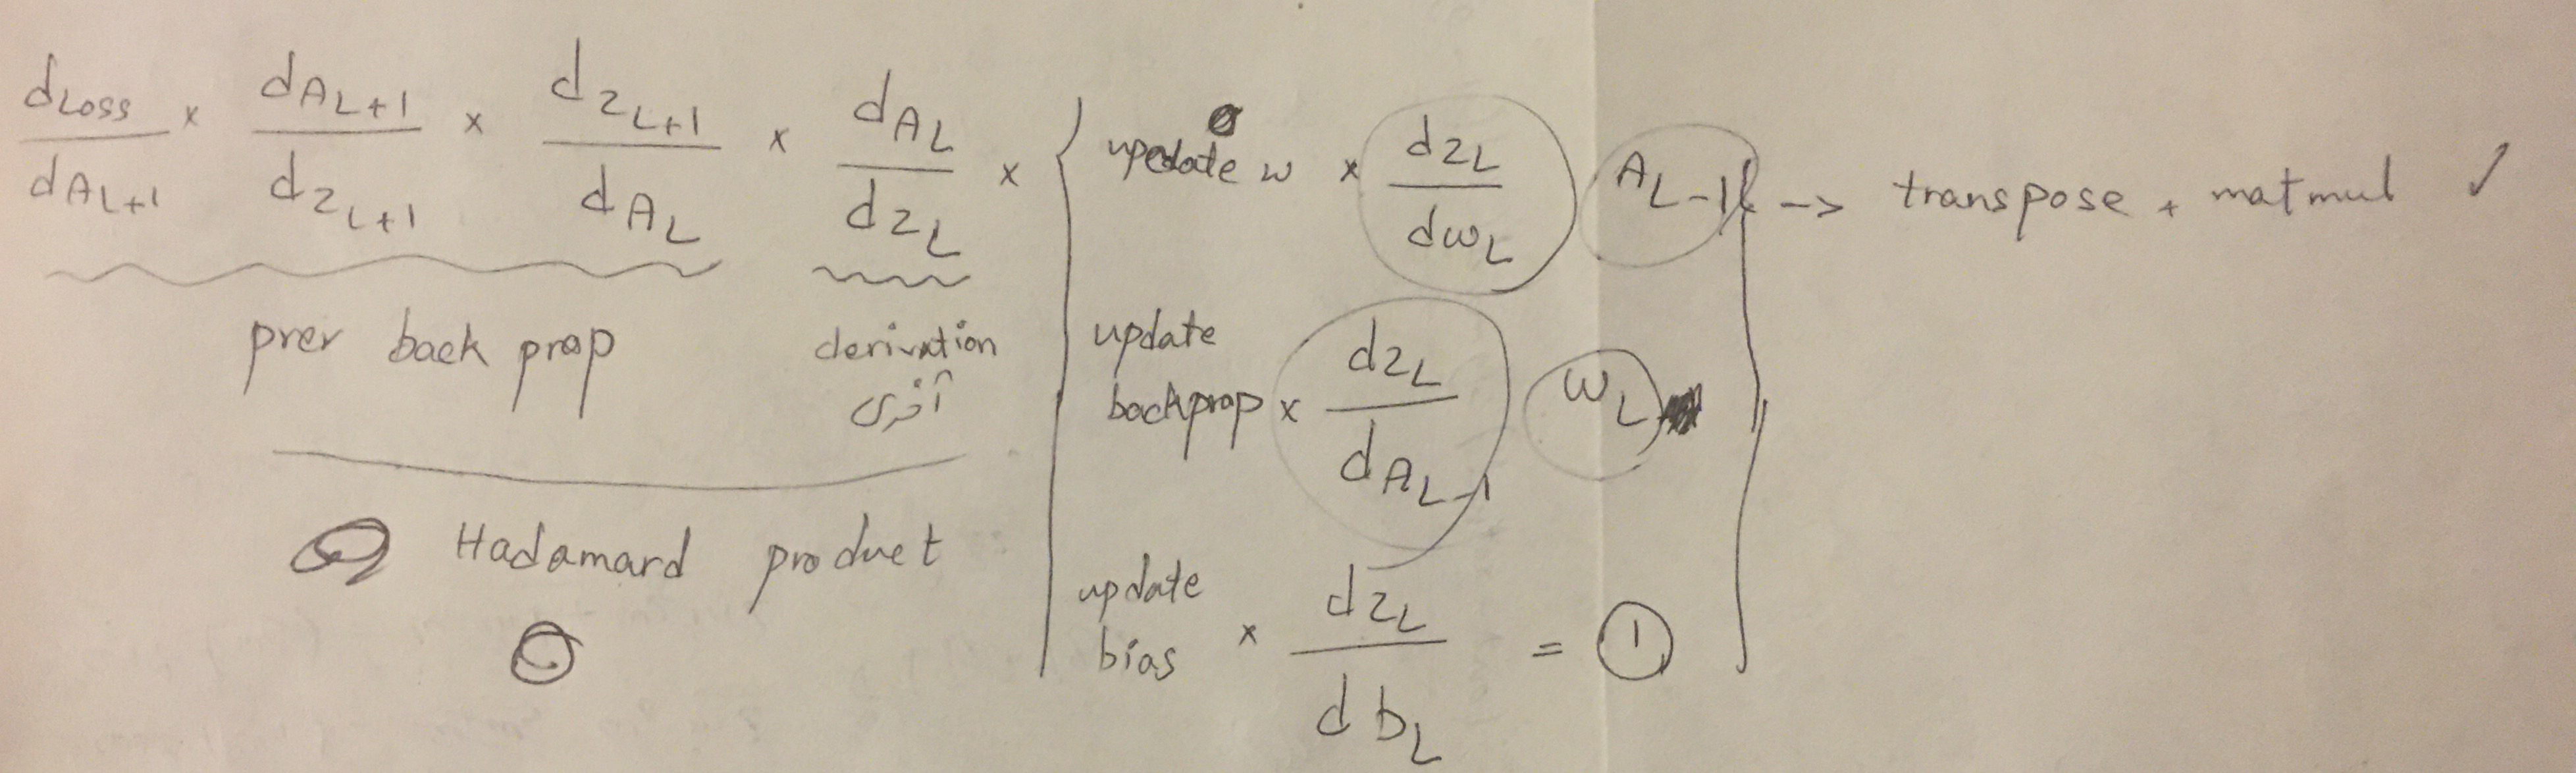 dLoss/dA_{L+1} × dA_{L+1}/dz_{L+1} × dz_{L+1}/dA_L × dA_L/dz_L ×
prev back prop
derivation
آخری
Hadamard product
update w × dz_L/dw_L A_{L-1} -> transpose + matmul ✓
update
backprop × dz_L/dA_{L-1} w_L
update
bias × dz_L/db_L = 1